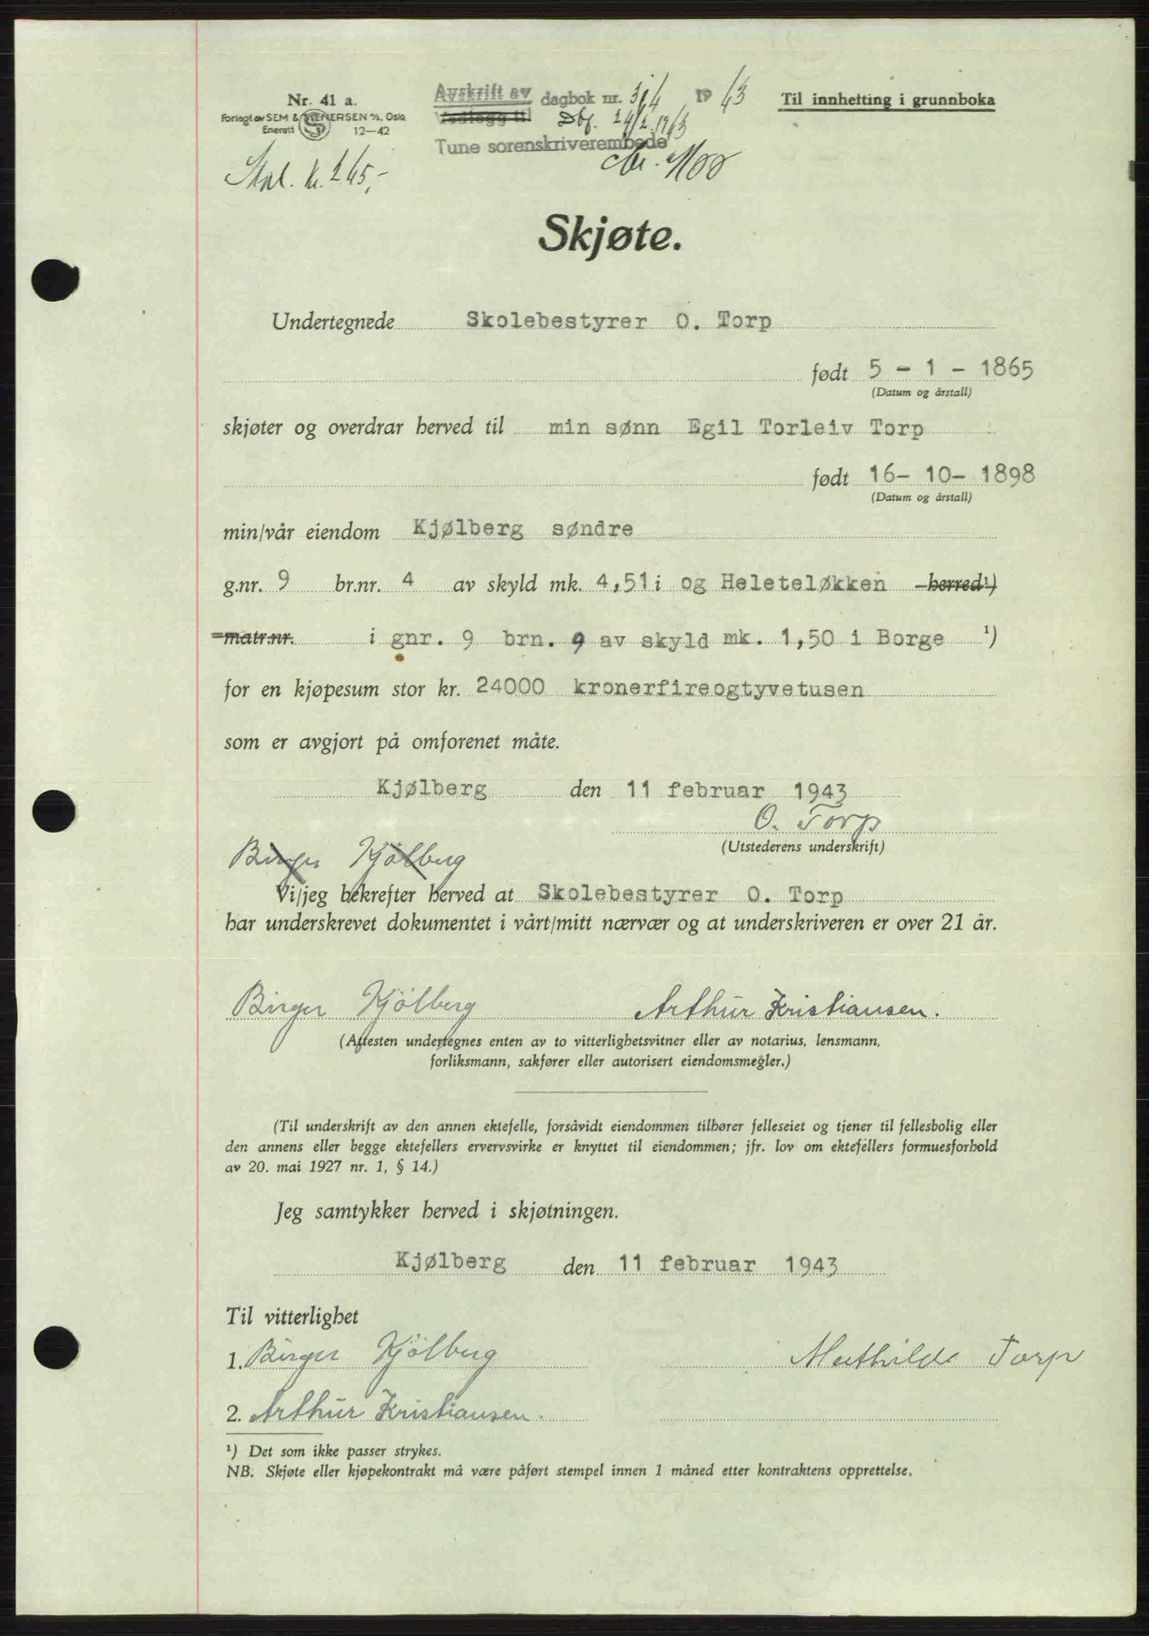 Nr. 41 a.
Forlagt av SEM & STENERSEN A/S, Oslo
Enerett 12—42
Avskrift av dagbok nr. 314 1943
Vedlegg til Dbf. 24/2 1943
Tune sorenskriverembede
Til innhefting i grunnboka
Stpl. kr. 265,-
Skjøte.
Undertegnede Skolebestyrer O. Torp
født 5 - 1 - 1865
(Datum og årstall)
skjøter og overdrar herved til min sønn Egil Torleiv Torp
født 16- 10- 1898
(Datum og årstall)
min/vår eiendom Kjølberg søndre
g.nr. 9 br.nr. 4 av skyld mk. 4,51 i og Heleteløkken herred¹)
matr.nr. i gnr. 9 brn. 9 av skyld mk. 1,50 i Borge ¹)
for en kjøpesum stor kr. 24000 kronerfireogtyvetusen
som er avgjort på omforenet måte.
Kjølberg den 11 februar 1943
O. Torp
(Utstederens underskrift)
Birger Kjölberg
Vi/jeg bekrefter herved at Skolebestyrer O. Torp
har underskrevet dokumentet i vårt/mitt nærvær og at underskriveren er over 21 år.
Birger Kjölberg Arthur Kristiansen.
(Attesten undertegnes enten av to vitterlighetsvitner eller av notarius, lensmann,
forliksmann, sakfører eller autorisert eiendomsmegler.)
(Til underskrift av den annen ektefelle, forsåvidt eiendommen tilhører felleseiet og tjener til fellesbolig eller
den annens eller begge ektefellers ervervsvirke er knyttet til eiendommen; jfr. lov om ektefellers formuesforhold
av 20. mai 1927 nr. 1, § 14.)
Jeg samtykker herved i skjøtningen.
Kjølberg den 11 februar 1943
Til vitterlighet
1. Birger Kjölberg Mathilde Torp
2. Arthur Kristiansen.
¹) Det som ikke passer strykes.
NB. Skjøte eller kjøpekontrakt må være påført stempel innen 1 måned etter kontraktens opprettelse.